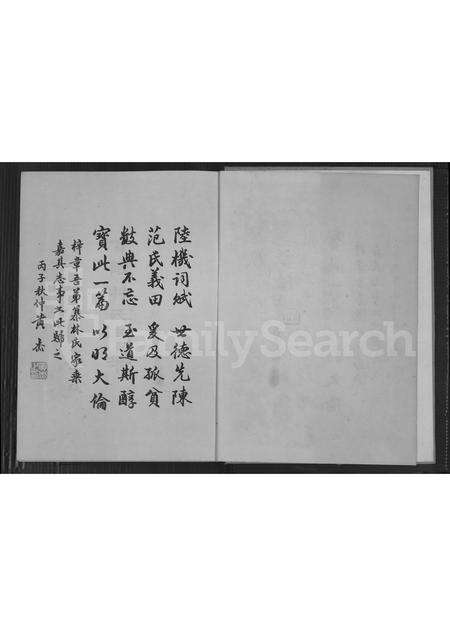 陸機詞賦 世德先陳
范民義田 惠及孤貧
數典不忘 至道斯醇
寶此一篇 以明大倫
梓章吾弟纂林氏家乘
嘉其志事書此歸之
丙子秋仲黃杰
FamilySearch